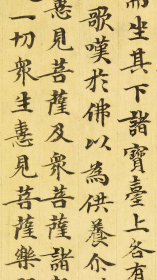 而坐其下諸寶臺上各有
歌嘆於佛以為供養尒
憙見菩薩及眾菩薩諸
一切眾生憙見菩薩樂